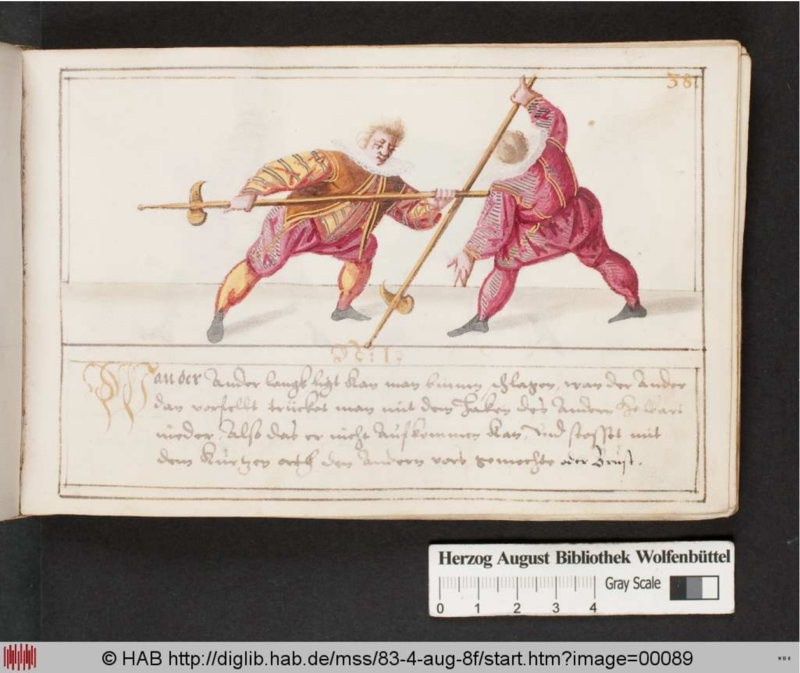 38
N: 1:
Wan der Ander langk ligt kan man binnen schlagen, wan der Ander
dan vorfellt trücket man mit dem haken des Andern
nieder, Also das er nicht Aufkommen kan, Und stosset mit
dem Kurtzen orth den Andern vors gemechte oder Brust.
Herzog August Bibliothek Wolfenbüttel
Gray Scale
0 1 2 3 4
© HAB http://diglib.hab.de/mss/83-4-aug-8f/start.htm?image=00089